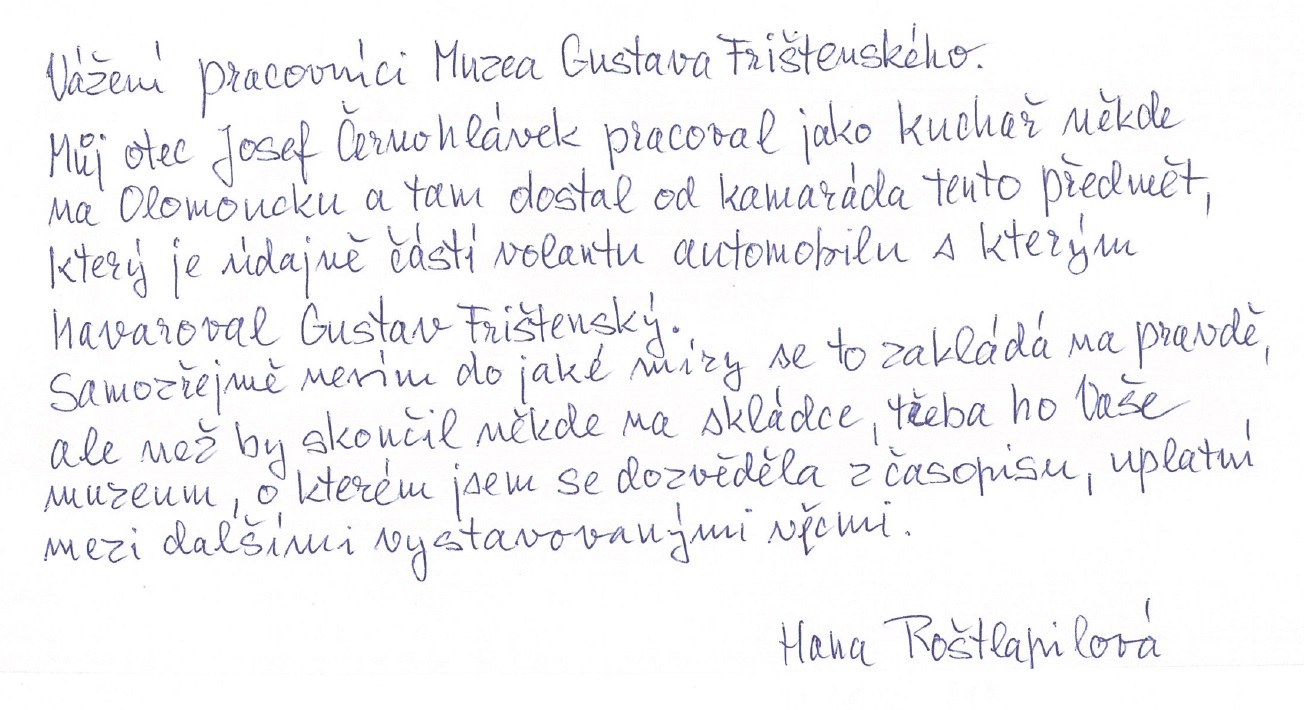 Vážení pracovníci Muzea Gustava Frištenského.
Můj otec Josef Černohlávek pracoval jako kuchař někde
na Olomoucku a tam dostal od kamaráda tento předmět,
který je údajně částí volantu automobilu s kterým
havaroval Gustav Frištenský.
Samozřejmě nevím do jaké míry se to zakládá na pravdě,
ale než by skončil někde na skládce, třeba ho Vaše
muzeum, o kterém jsem se dozvěděla z časopisu, uplatní
mezi dalšími vystavovanými věcmi.
Hana Roštlapilová